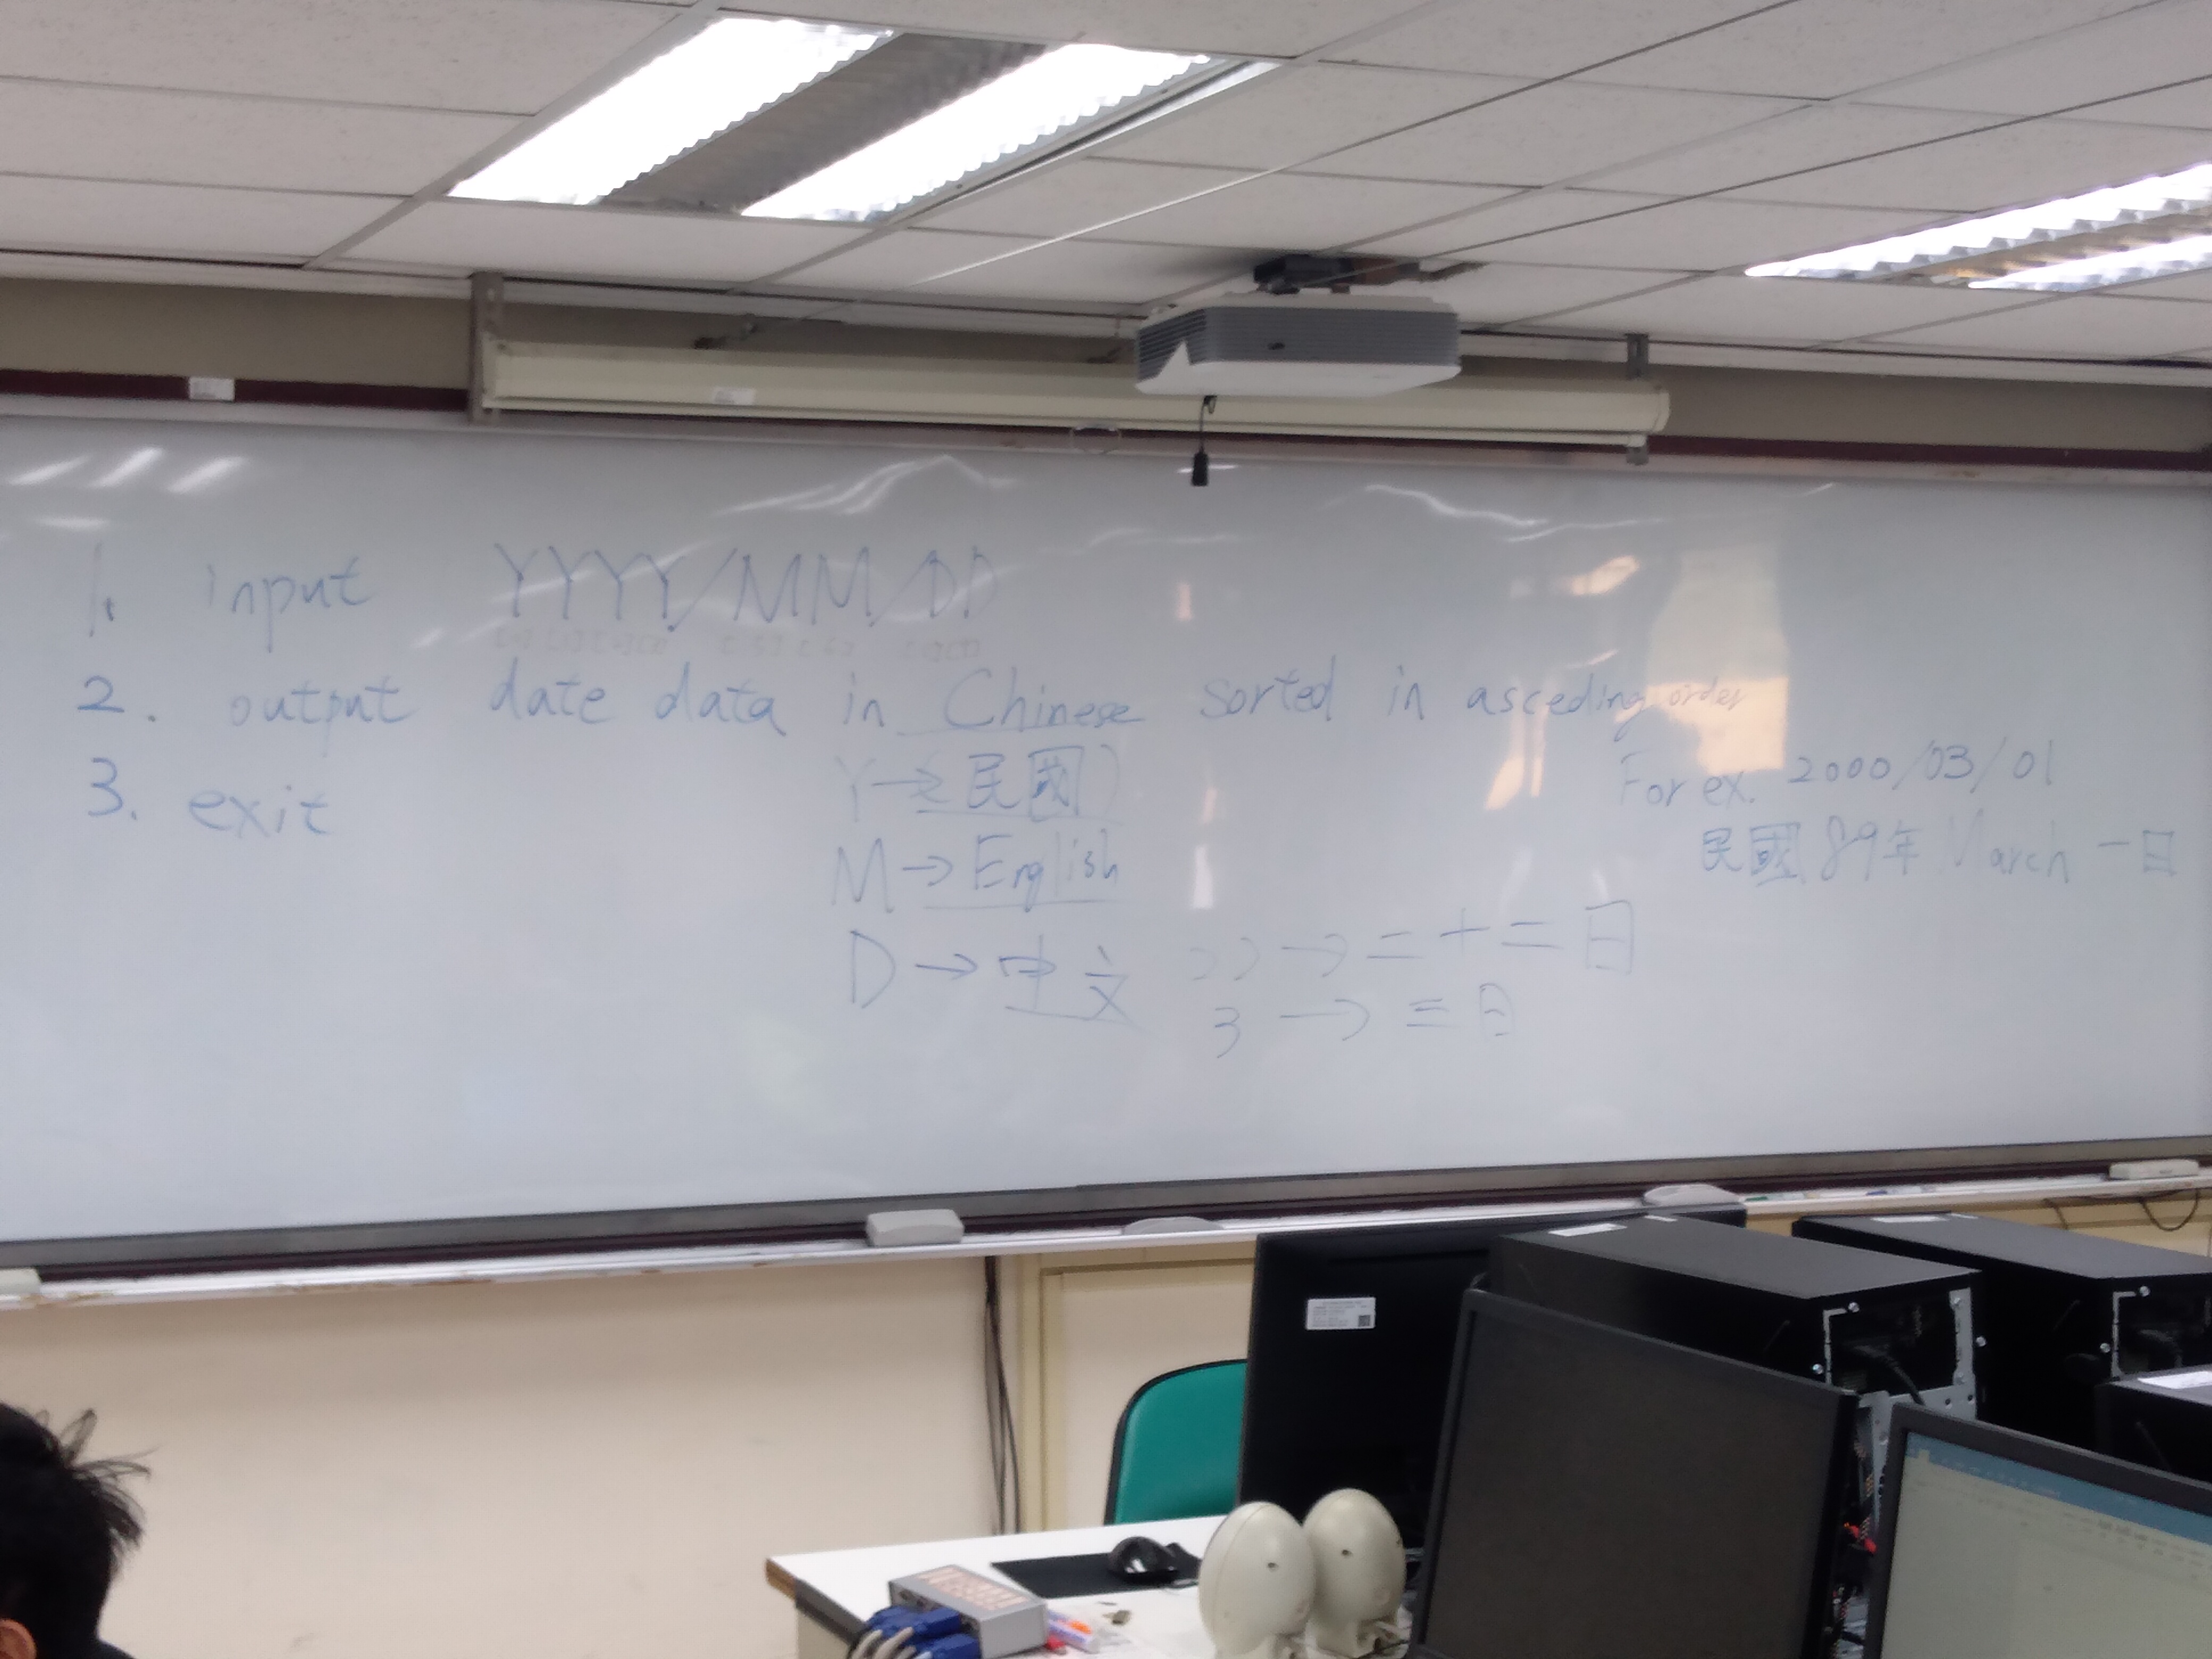 1. input YYYY/MM/DD
2. output date data in Chinese sorted in asceding order
3. exit
Y→民國)
M→English
D→中文 22→二十二日
3→三日
For ex. 2000/03/01
民國89年 March 一日